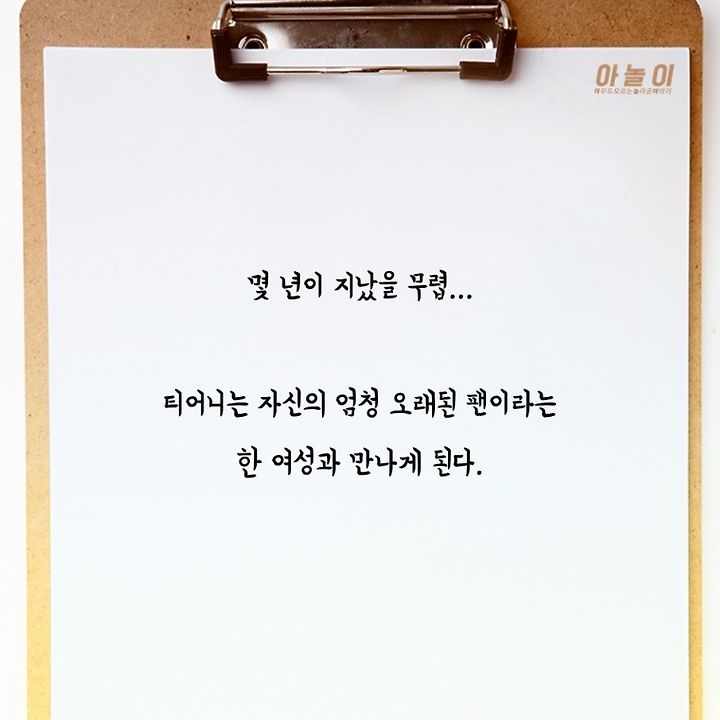 아놀이
아무도모르는놀라운이야기
몇 년이 지났을 무렵...
티어니는 자신의 엄청 오래된 팬이라는
한 여성과 만나게 된다.